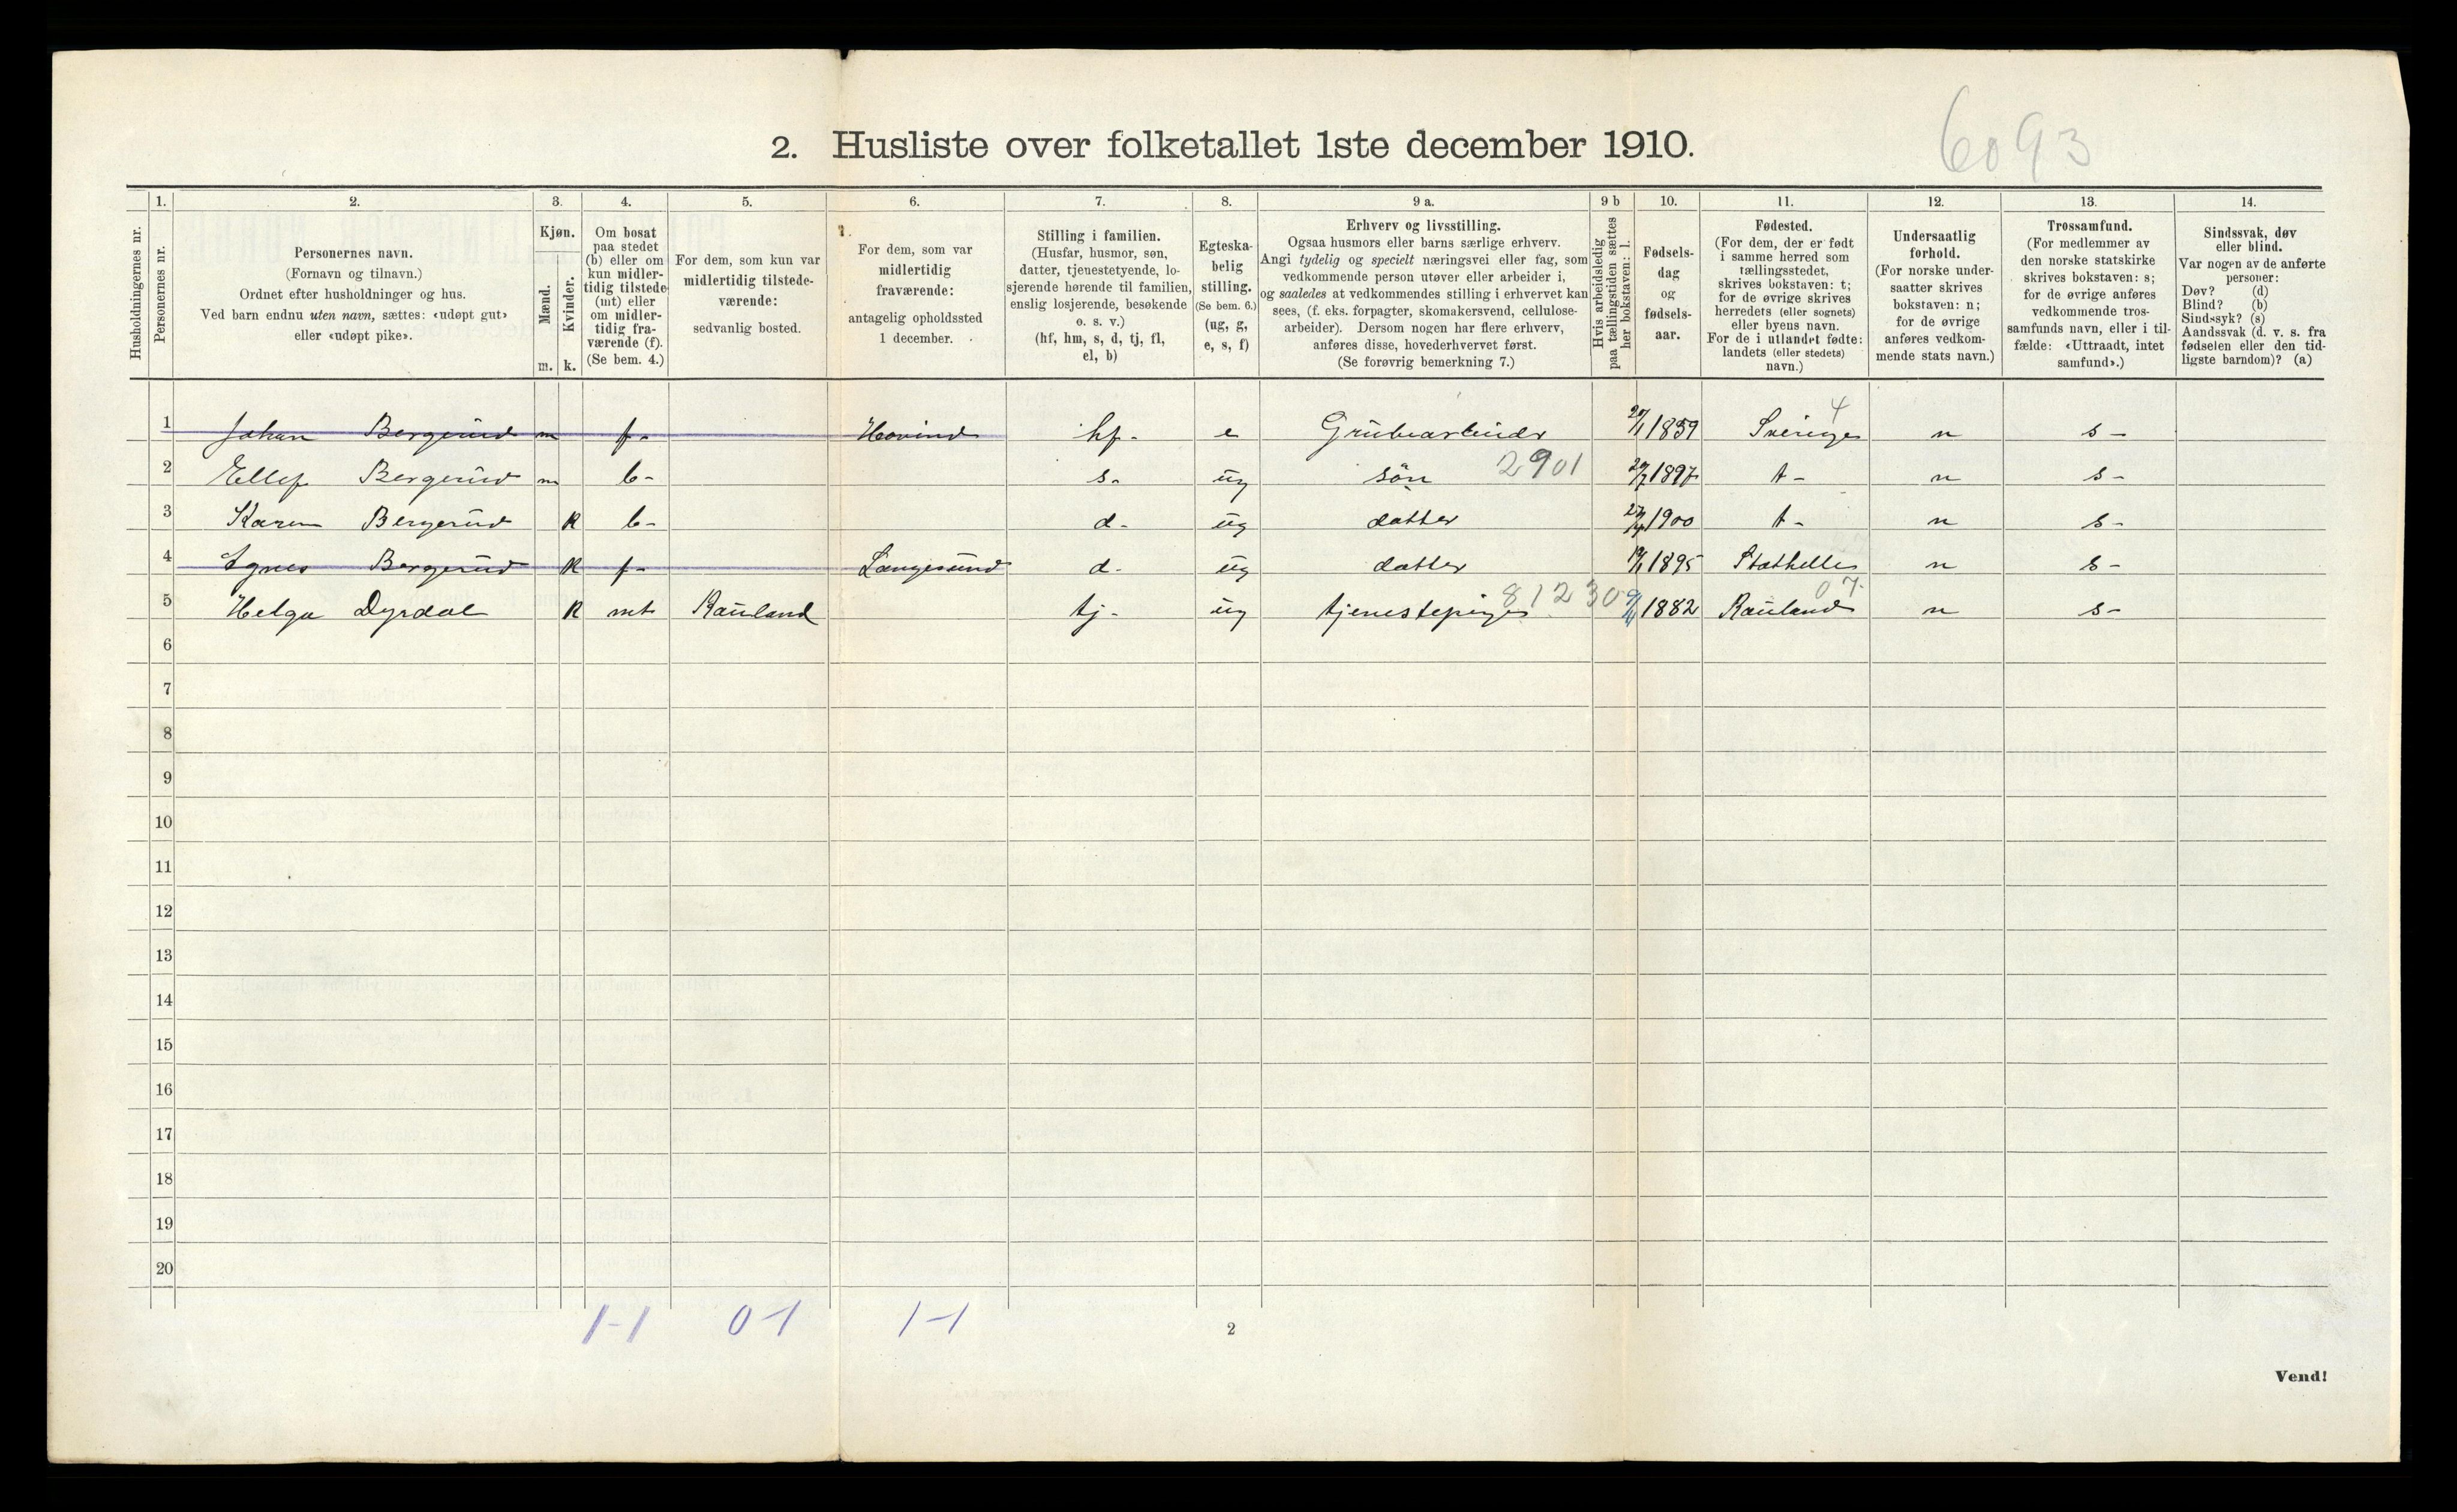 6093
2. Husliste over folketallet 1ste december 1910.
Husholdningernes nr.
1.
Personernes nr.
2.
Personernes navn.
(Fornavn og tilnavn.)
Ordnet efter husholdninger og hus.
Ved barn endnu uten navn, sættes: «udøpt gut»
eller «udøpt pike».
3.
Kjøn.
Mænd.
Kvinder.
m. k.
4.
Om bosat
paa stedet
(b) eller om
kun midler-
tidig tilstede
(mt) eller
om midler-
tidig fra-
værende (f).
(Se bem. 4.)
5.
For dem, som kun var
midlertidig tilstede-
værende:
sedvanlig bosted.
6.
For dem, som var
midlertidig
fraværende:
antagelig opholdssted
1 december.
7.
Stilling i familien.
(Husfar, husmor, søn,
datter, tjenestetyende, lo-
sjerende hørende til familien,
enslig losjerende, besøkende
o. s. v.)
(hf, hm, s, d, tj, fl,
el, b)
8.
Egteska-
belig
stilling.
(Se bem. 6.)
(ug, g,
e, s, f)
9 a.
Erhverv og livsstilling.
Ogsaa husmors eller barns særlige erhverv.
Angi tydelig og specielt næringsvei eller fag, som
vedkommende person utøver eller arbeider i,
og saaledes at vedkommendes stilling i erhvervet kan
sees, (f. eks. forpagter, skomakersvend, cellulose-
arbeider). Dersom nogen har flere erhverv,
anføres disse, hovederhvervet først.
(Se forøvrig bemerkning 7.)
9 b
Hvis arbeidsledig
paa tællingstiden sættes
her bokstaven: l.
10.
Fødsels-
dag
og
fødsels-
aar.
11.
Fødested.
(For dem, der er født
i samme herred som
tællingsstedet,
skrives bokstaven: t;
for de øvrige skrives
herredets (eller sognets)
eller byens navn.
For de i utlandet fødte:
landets (eller stedets)
navn.)
12.
Undersaatlig
forhold.
(For norske under-
saatter skrives
bokstaven: n;
for de øvrige
anføres vedkom-
mende stats navn.)
13.
Trossamfund.
(For medlemmer av
den norske statskirke
skrives bokstaven: s;
for de øvrige anføres
vedkommende tros-
samfunds navn, eller i til-
fælde: «Uttraadt, intet
samfund».)
14.
Sindssvak, døv
eller blind.
Var nogen av de anførte
personer:
Døv? (d)
Blind? (b)
Sindssyk? (s)
Aandssvak (d. v. s. fra
fødselen eller den tid-
ligste barndom)? (a)
4
1 Johan Bergerud m f- Hovind hf- e Grubearbeider 1859 Sverige n s-
2901
2 Ellef Bergerud m b- s- ug sön 1897 t- n s-
3 Karen Bergerud k b- d- ug datter 1900 t- n s-
4 Agnes Bergerud k f- Langesund d- ug datter 1895 Stathelle n s-
81230 07
5 Helga Dyrdal k mt Rauland tj- ug tjenestepige 1882 Rauland n s-
6
7
8
9
10
11
12
13
14
15
16
17
18
19
20
1-1 0-1 1-1
2
Vend!